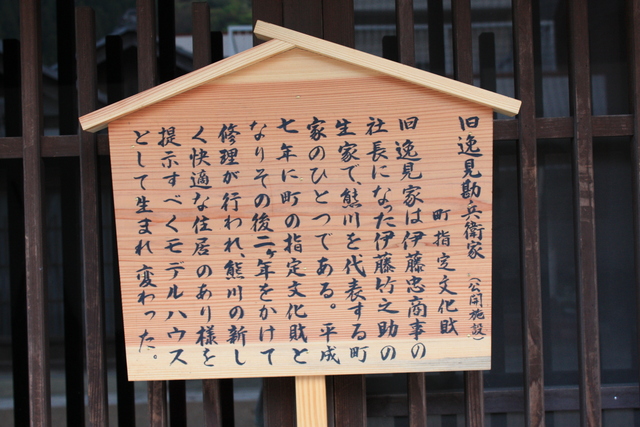 旧逸見勘兵衛家（公開施設）
町指定文化財
旧逸見家は伊藤忠商事の
社長になった伊藤竹之助の
生家で、熊川を代表する町
家のひとつである。平成
七年に町の指定文化財と
なりその後二ヶ年をかけて
修理が行われ、熊川の新し
く快適な住居のあり様を
提示すべくモデルハウス
として生まれ変わった。